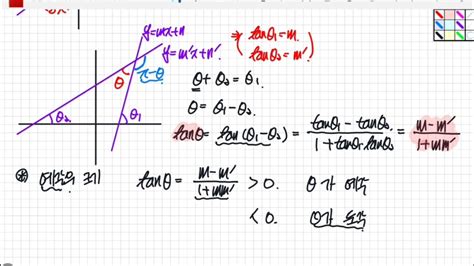 y=mx+n
y=m'x+n'
tanθ₁=m.
tanθ₂=m'
θ
π-θ
θ₂
θ₁
θ+θ₂=θ₁
θ=θ₁-θ₂
tanθ = tan(θ₁-θ₂) = (tanθ₁-tanθ₂)/(1+tanθ₁tanθ₂) = (m-m')/(1+mm')
tanθ = (m-m')/(1+mm') > 0. θ가 예각
< 0. θ가 둔각